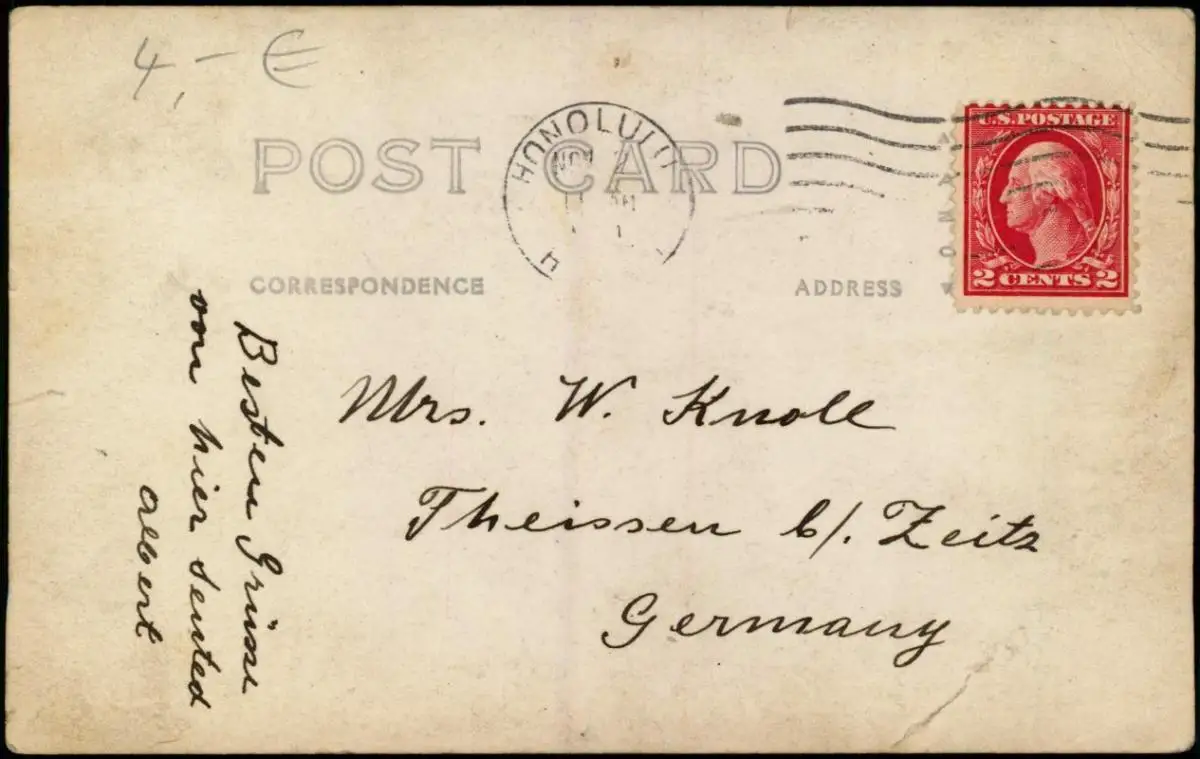 4,- €
POST CARD
HONOLULU
NOV
U.S. POSTAGE
2 CENTS 2
CORRESPONDENCE
ADDRESS
Besten Grüsse
von hier sented
Albert
Mrs. W. Knoll
Theissen b/. Zeitz
Germany